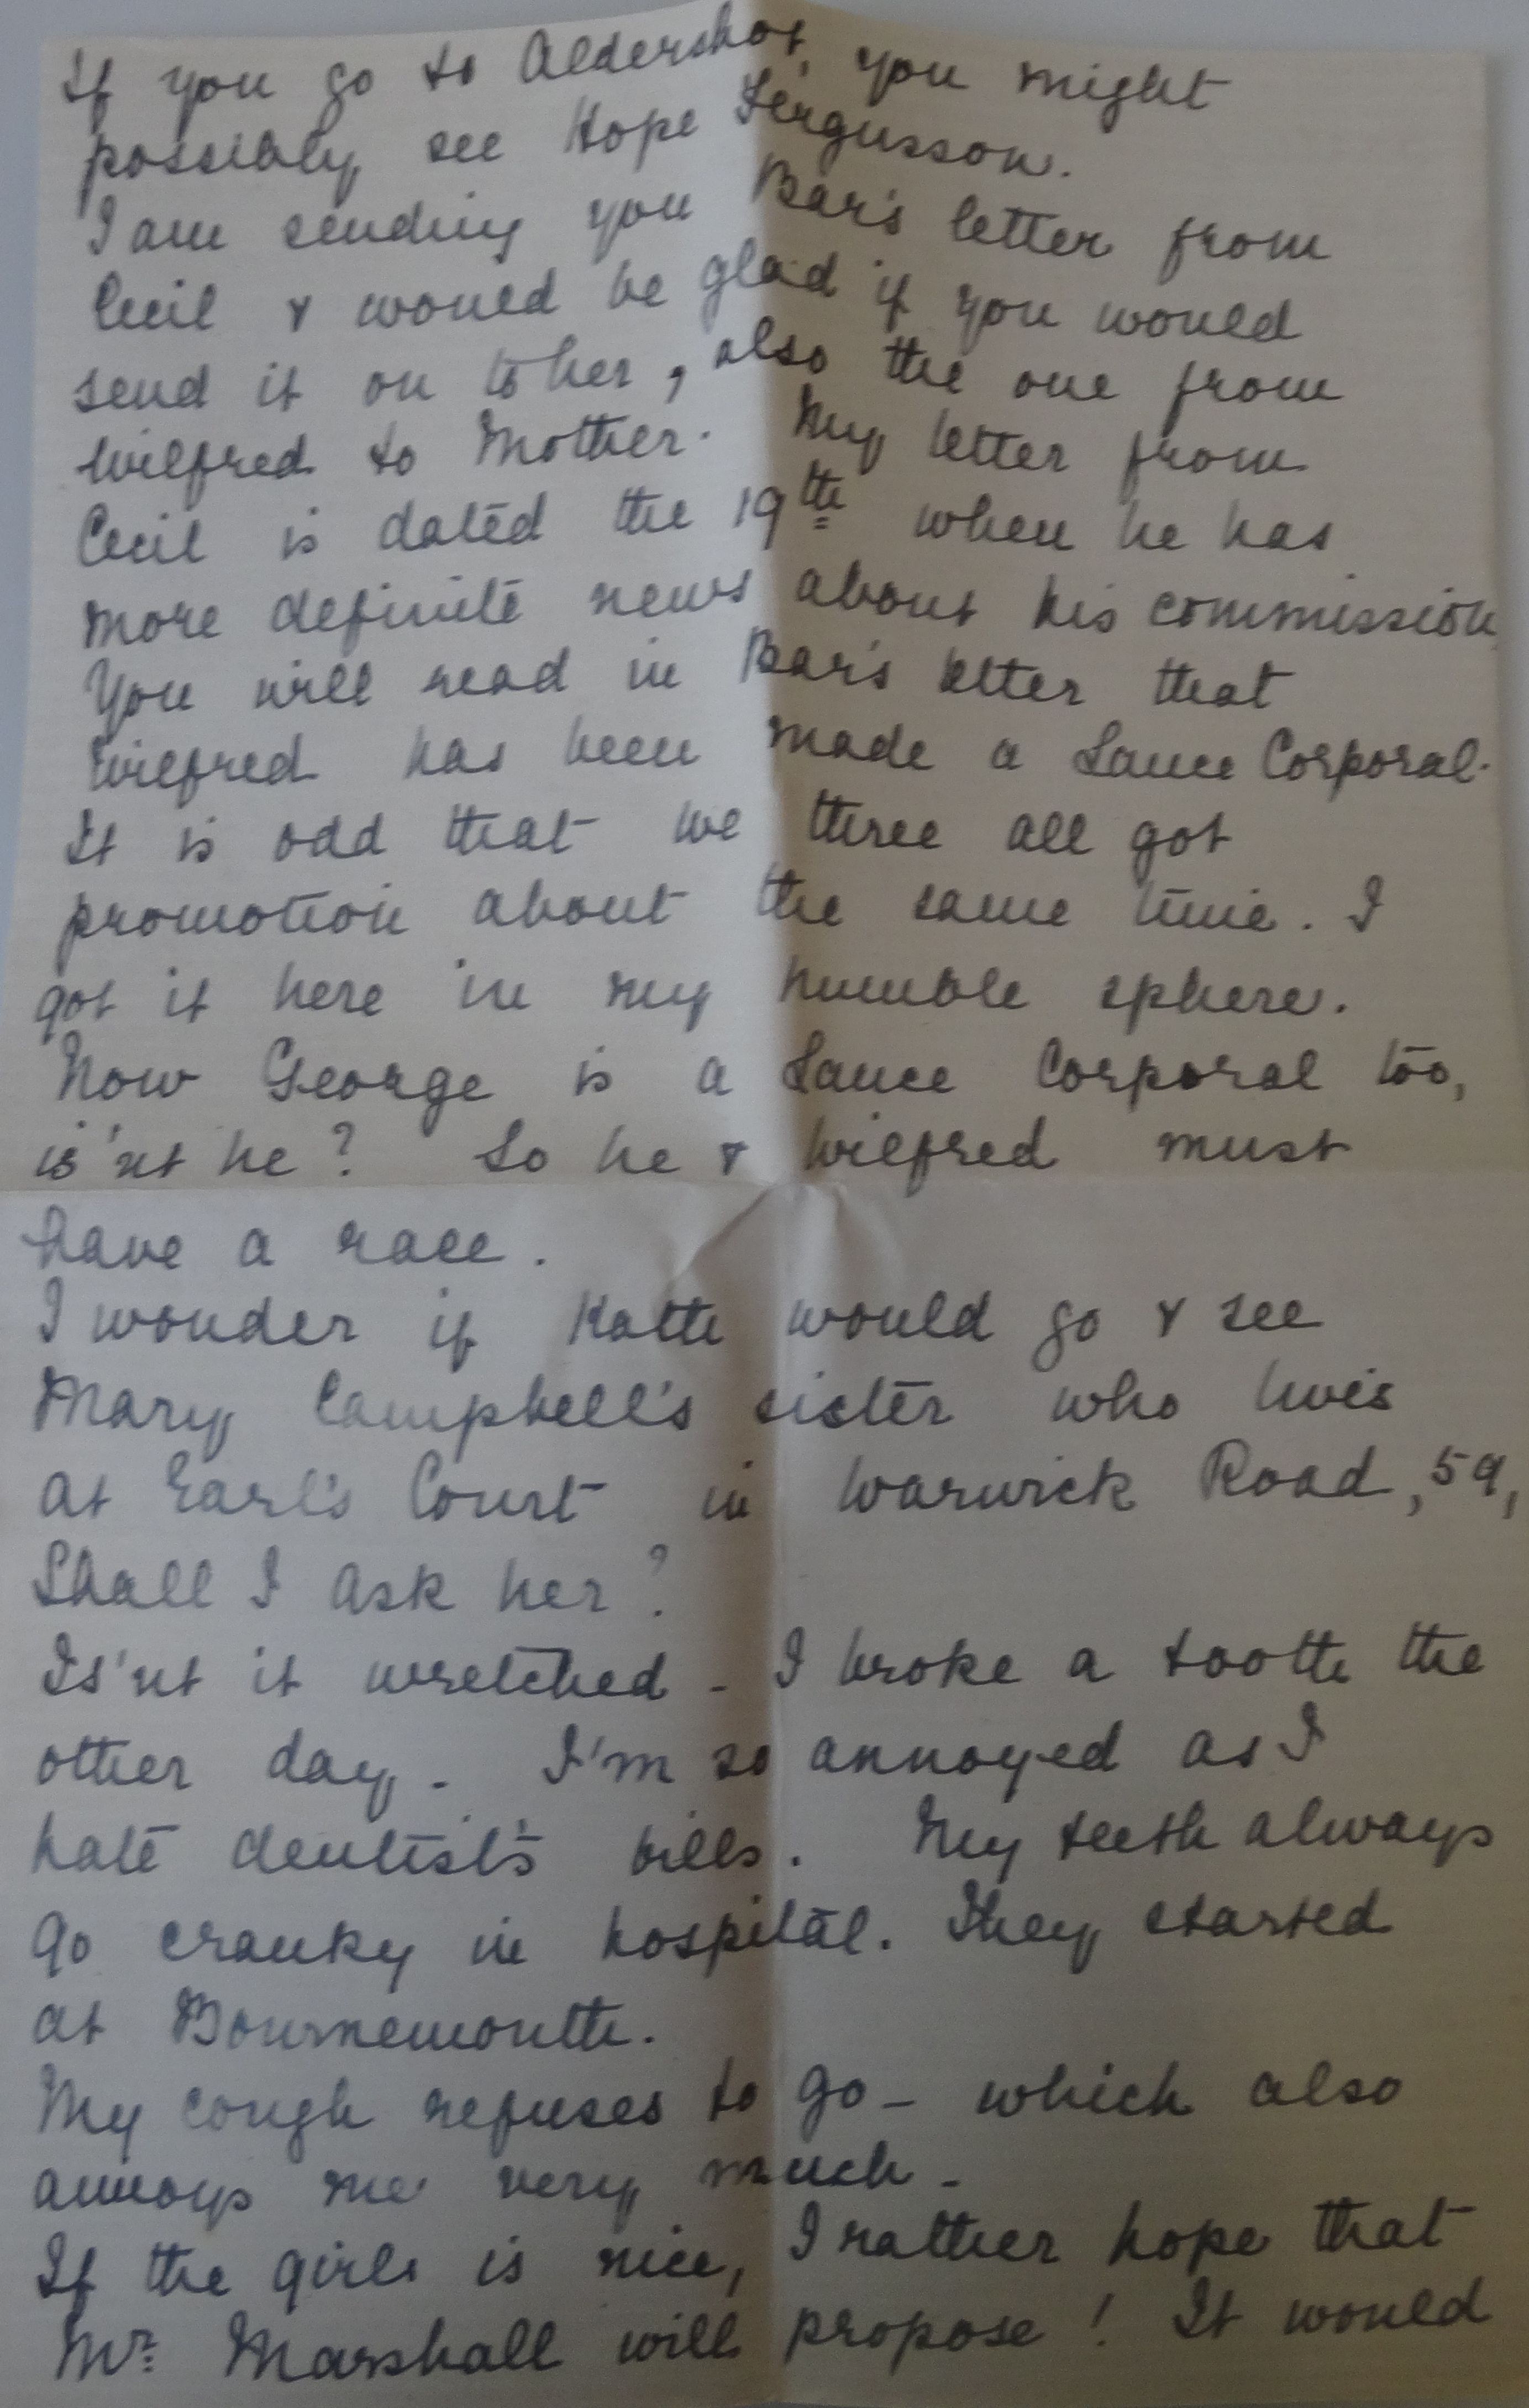 If you go to Aldershot, you might
possibly see Hope Fergusson.
I am sending you Bar's letter from
Cecil & would be glad if you would
send it on to her, also the one from
Wilfred to Mother. My letter from
Cecil is dated the 19th when he has
more definite news about his commission.
You will read in Bar's letter that
Wilfred has been made a Lance Corporal.
It is odd that we three all got
promotion about the same time. I
got it here in my humble sphere.
Now George is a Lance Corporal too,
is'nt he? So he & Wilfred must
have a race.
I wonder if Kath would go & see
Mary Campbell's sister who lives
at Earl's Court in Warwick Road, 59,
Shall I ask her?
Is'nt it wretched - I broke a tooth the
other day. I'm so annoyed as I
hate dentist's bills. My teeth always
go cranky in hospital. They started
at Bournemouth.
My cough refuses to go - which also
annoys me very much -
If the girl is nice, I rather hope that
Mr. Marshall will propose! It would